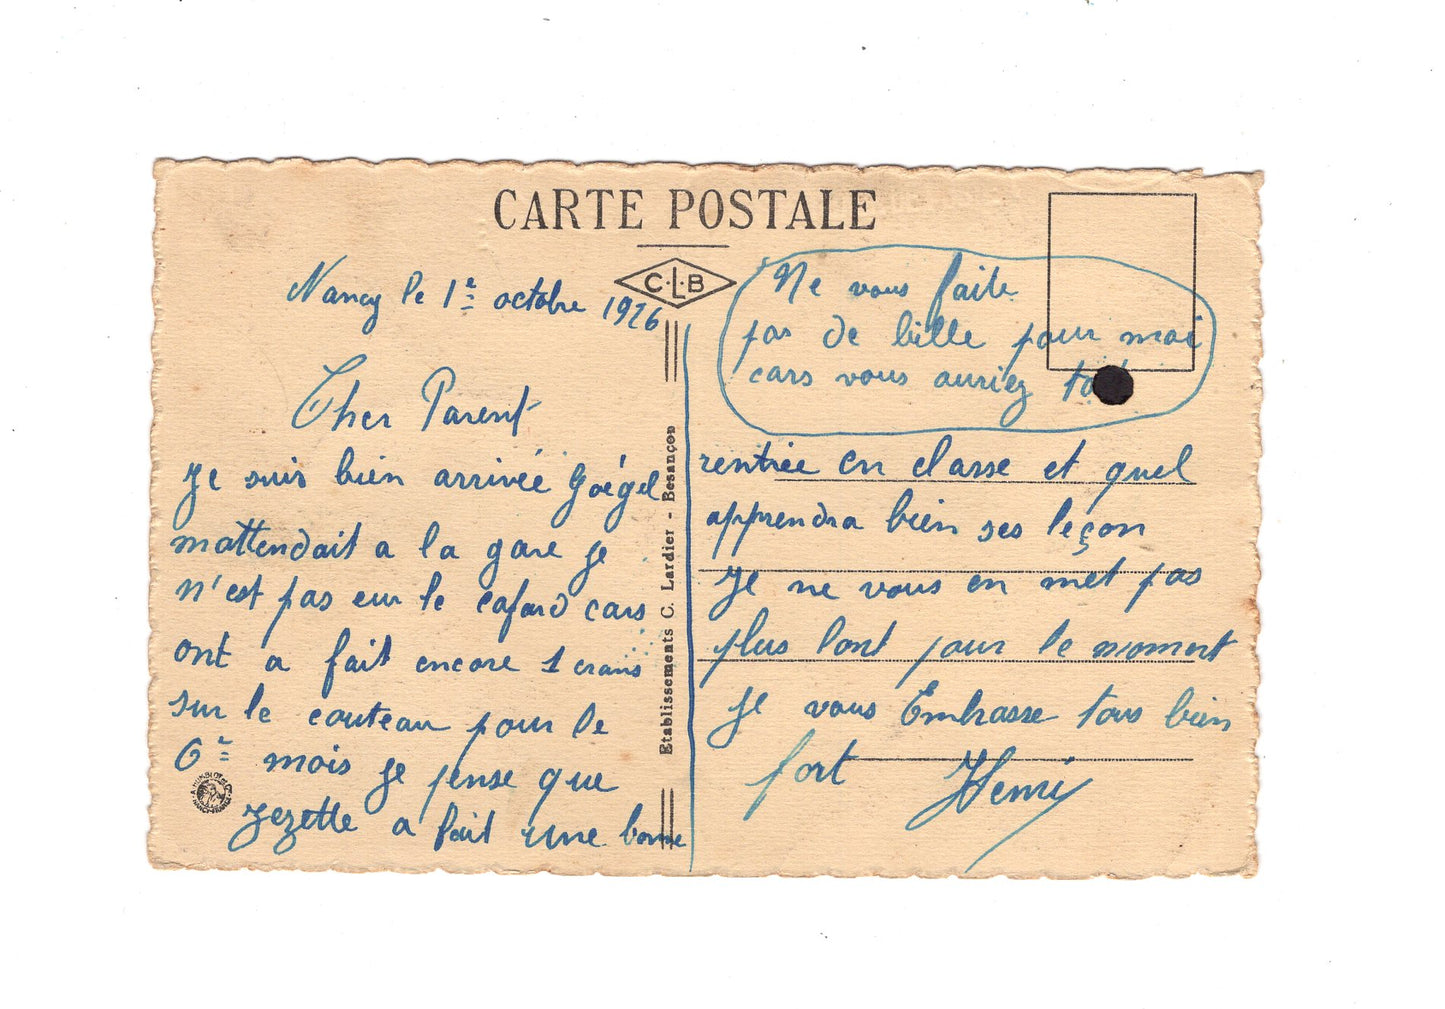 CARTE POSTALE
C·L·B
Nancy le 1e octobre 1926
Cher Parent
Je suis bien arrivée Goégel
mattendait a la gare je
n'est pas eur le cafard cars
ont a fait encore 1 crans
sur le couteau pour le
6e mois je pense que
Zezette a fait une bonne
Etablissements C. Lardier - Besançon
Ne vous faite
pas de bille pour moi
cars vous auriez
rentrée en classe et quel
apprendra bien ses leçon
Je ne vous en met pas
plus lont pour le moment
Je vous Embrasse tous bien
fort Henri